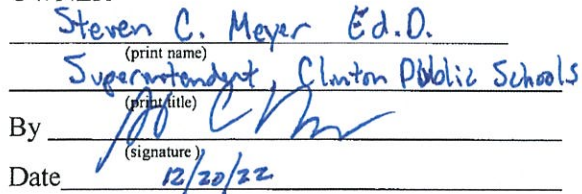 Steven C. Meyer Ed.D.
(print name)
Superintendent, Clinton Public Schools
(print title)
By
(signature)
Date 12/20/22